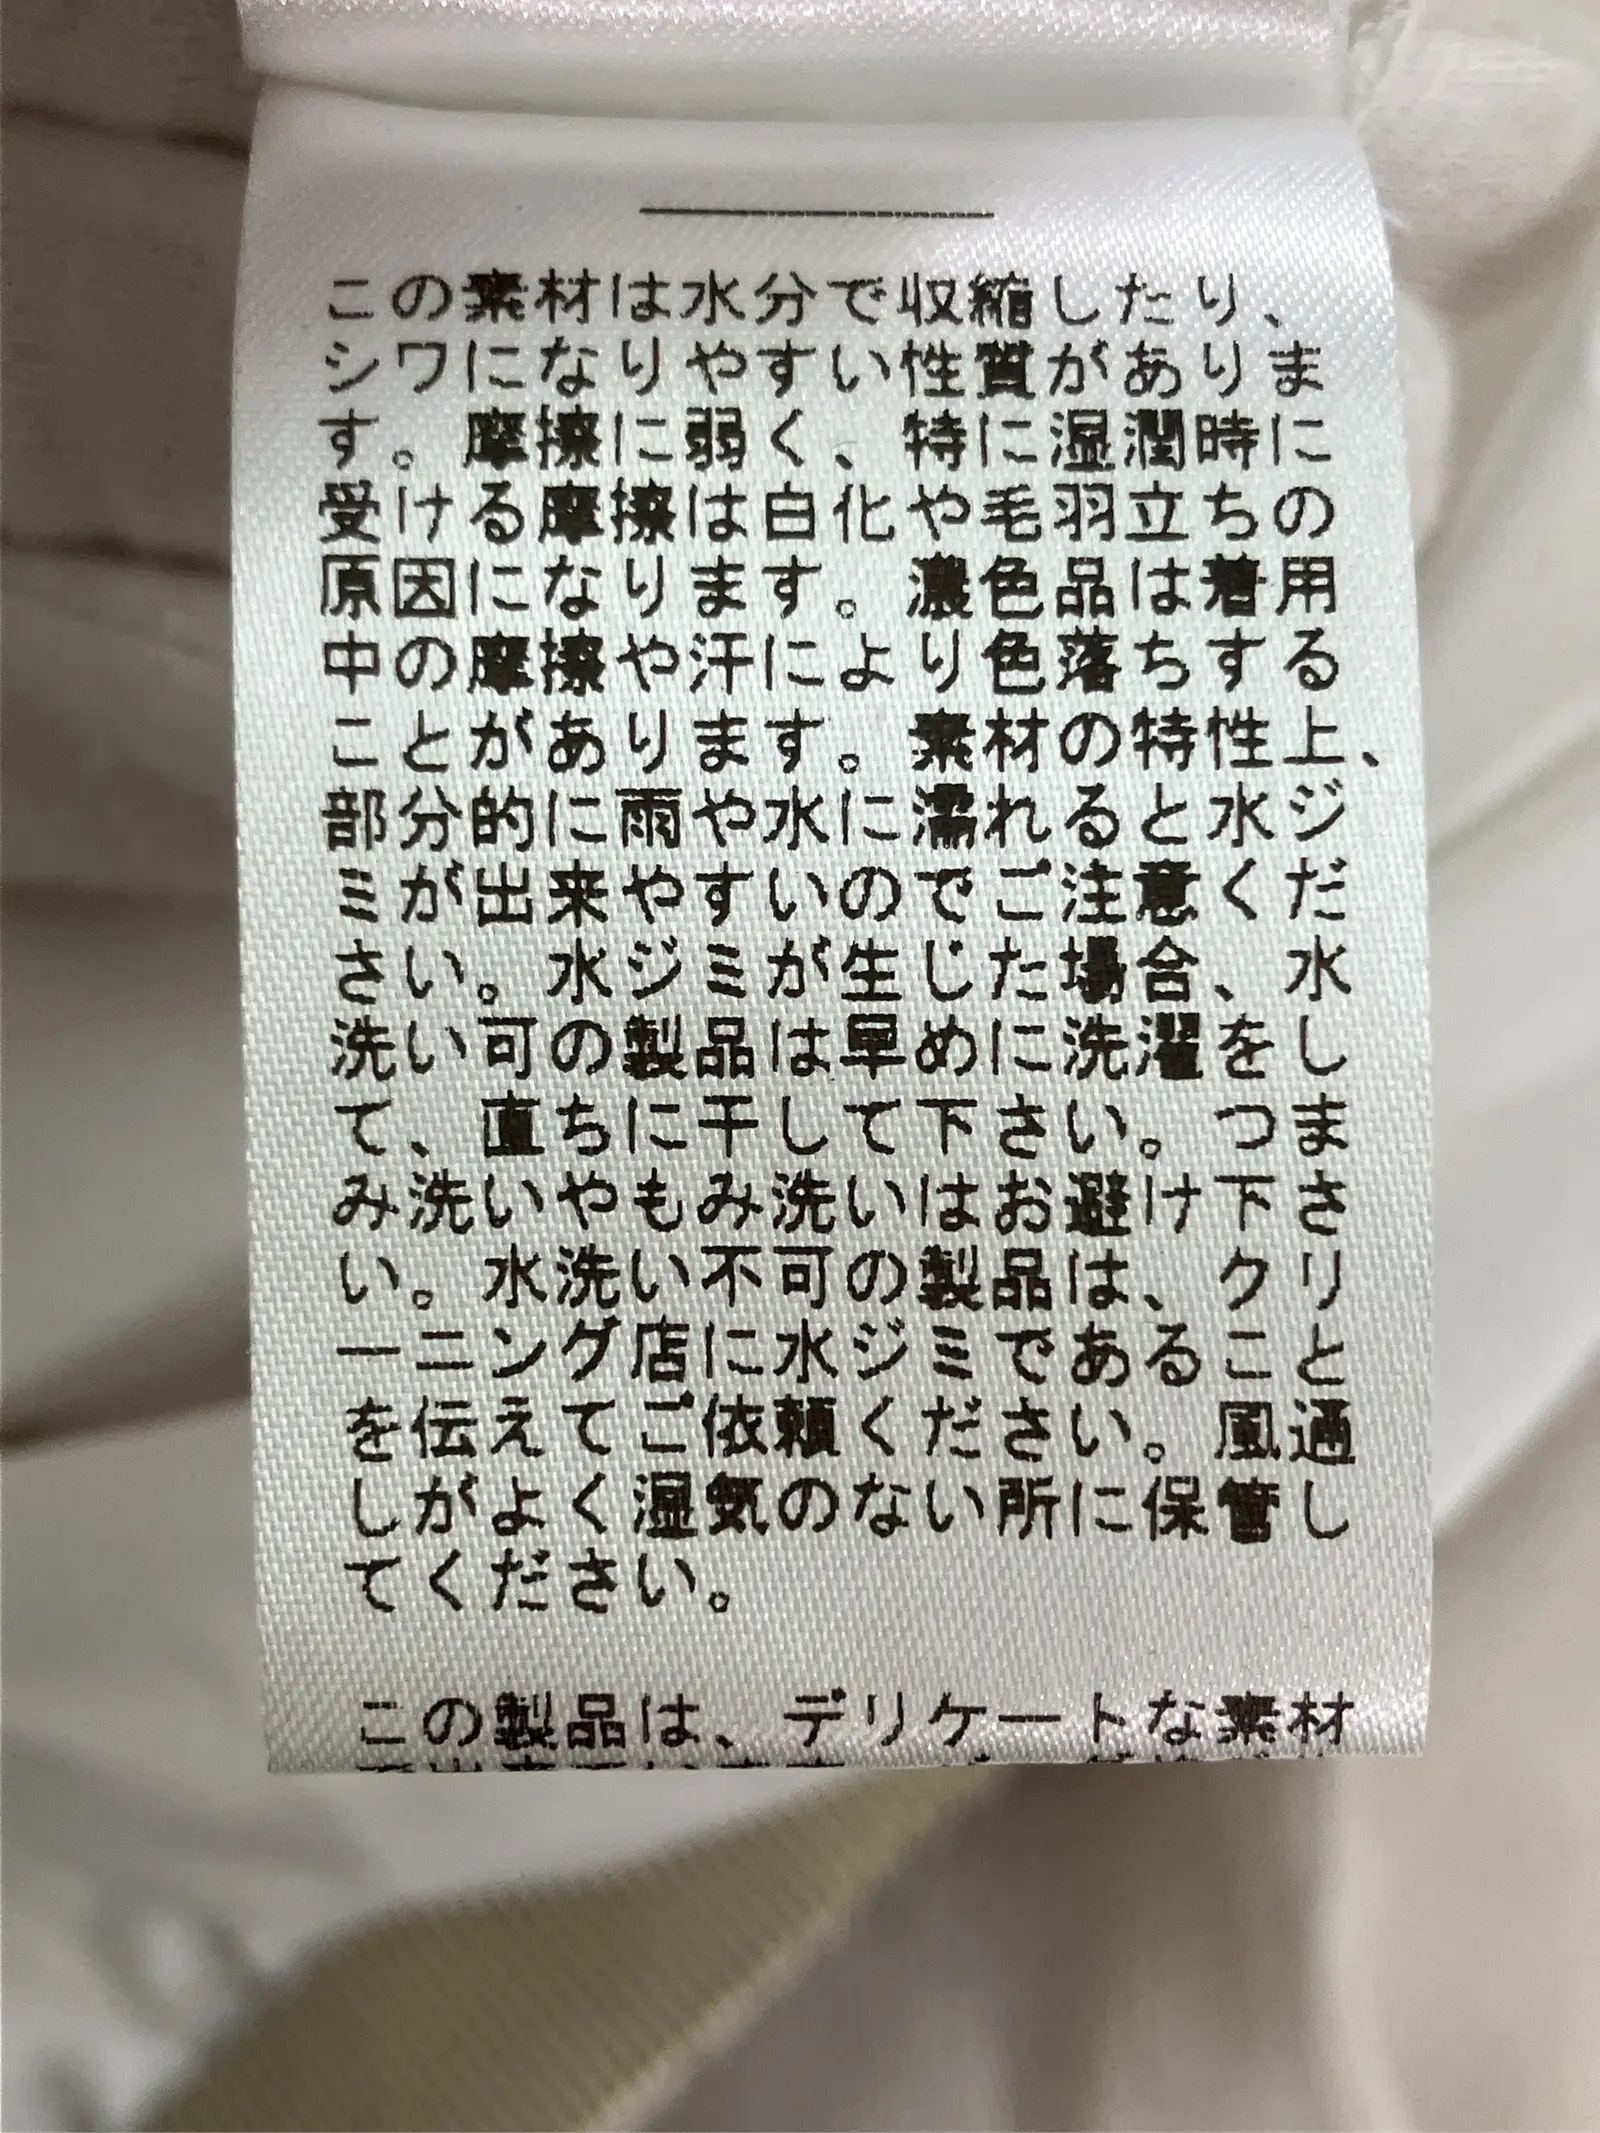 この素材は水分で収縮したり、
シワになりやすい性質がありま
す。摩擦に弱く、特に湿潤時に
受ける摩擦は白化や毛羽立ちの
原因になります。濃色品は着用
中の摩擦や汗により色落ちする
ことがあります。素材の特性上、
部分的に雨や水に濡れると水ジ
ミが出来やすいのでご注意くだ
さい。水ジミが生じた場合、水
洗い可の製品は早めに洗濯をし
て、直ちに干して下さい。つま
み洗いやもみ洗いはお避け下さ
い。水洗い不可の製品は、クリ
ーニング店に水ジミであること
を伝えてご依頼ください。風通
しがよく湿気のない所に保管し
てください。
この製品は、デリケートな素材